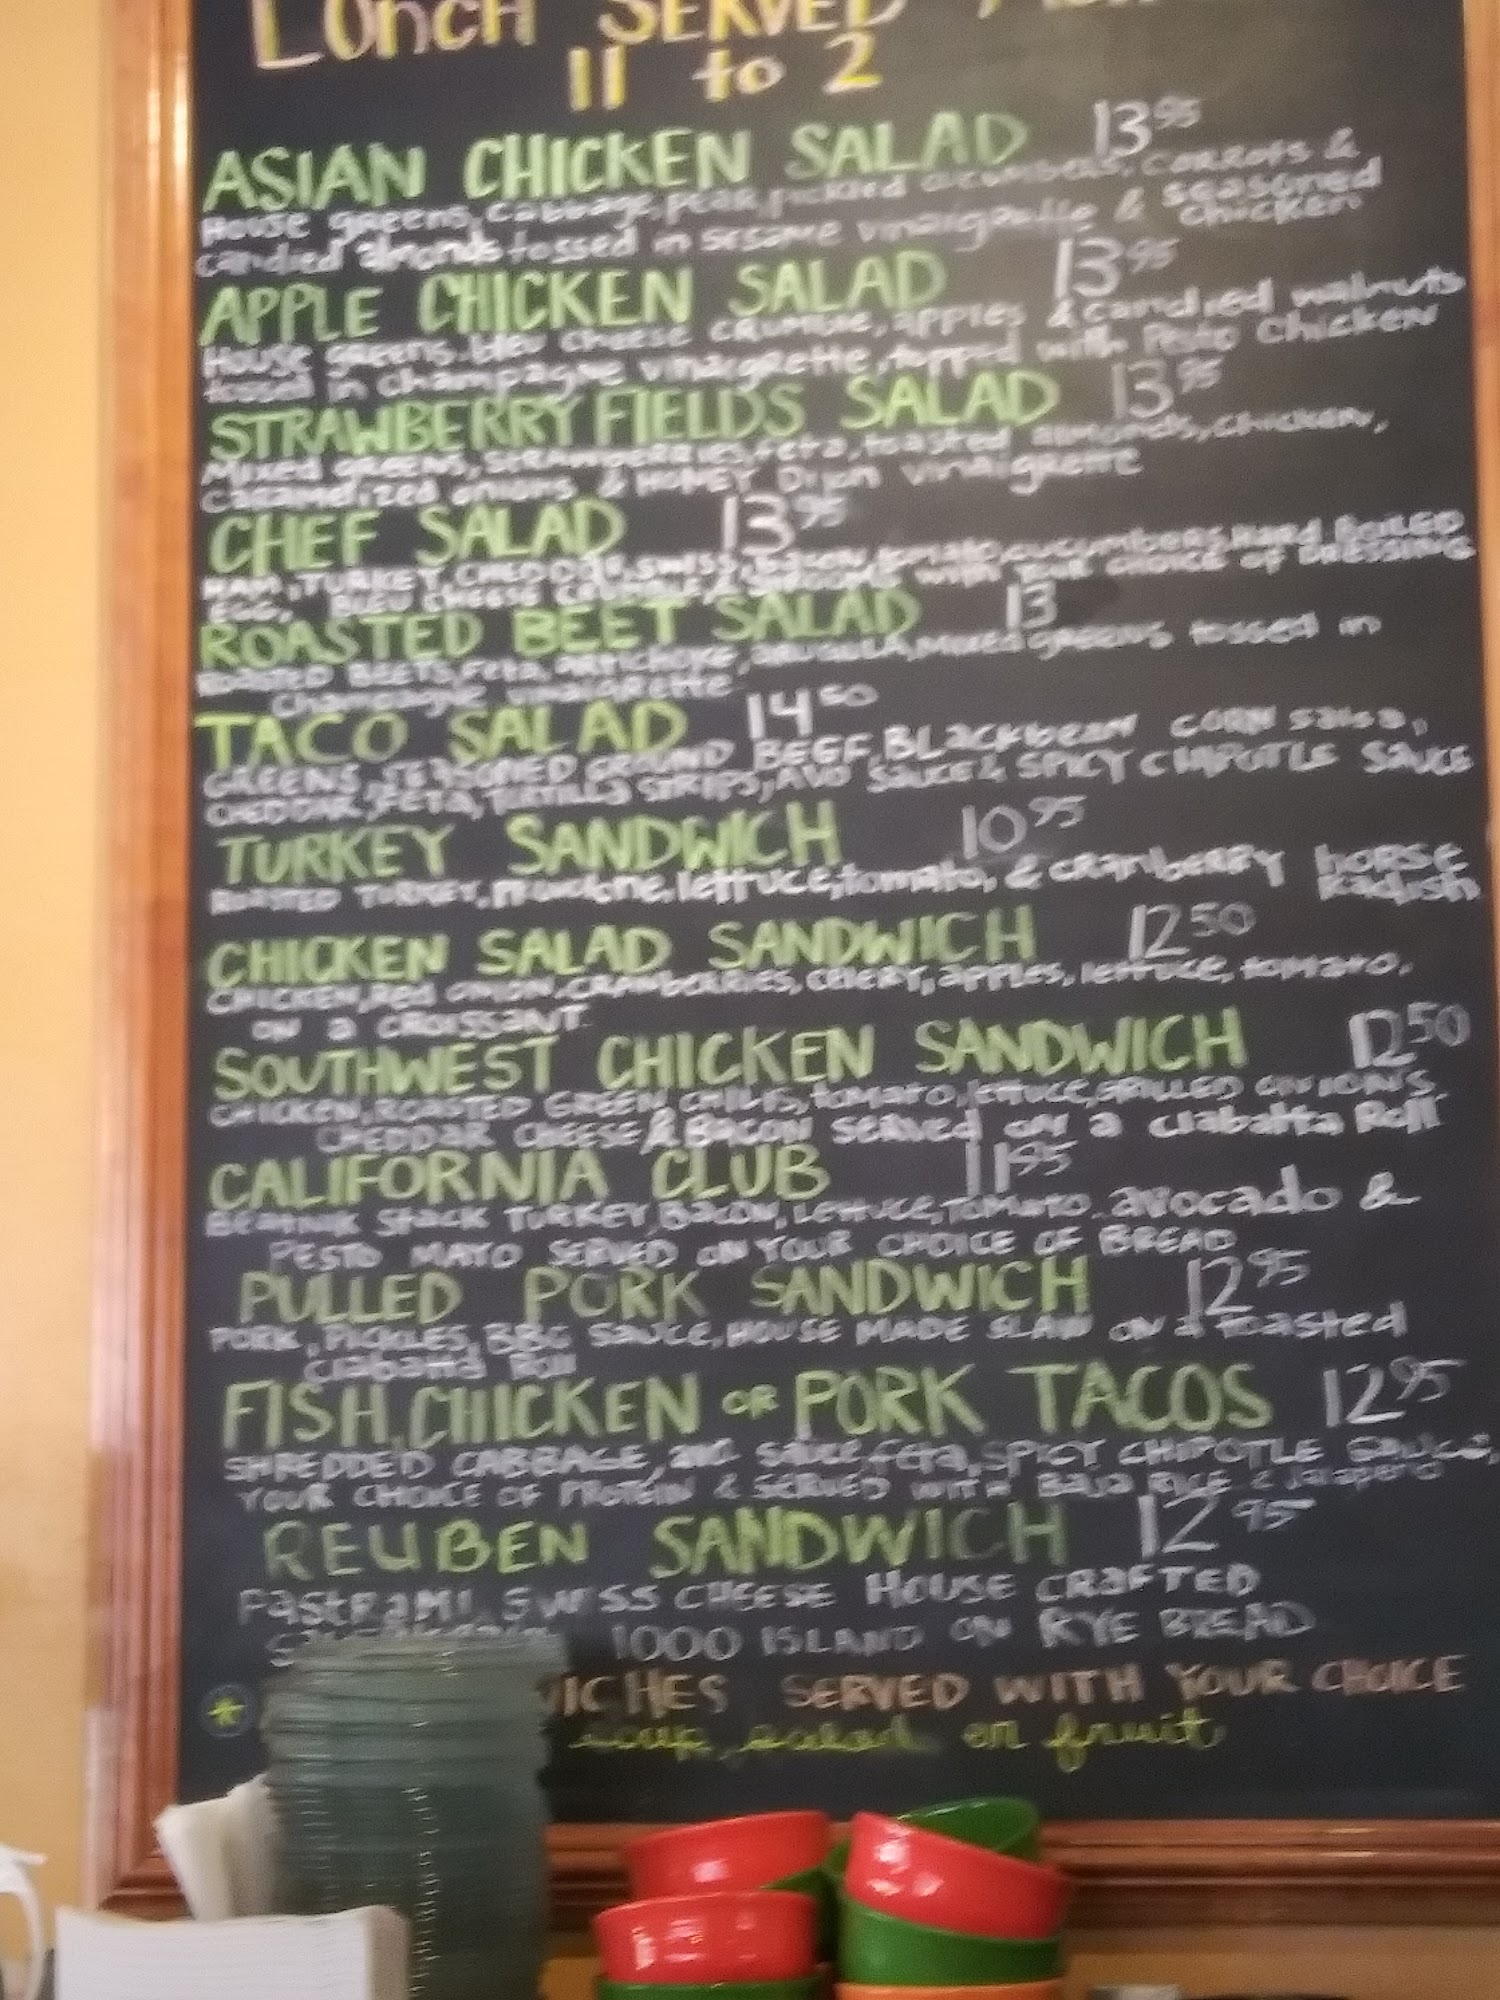 LUnCH SERVED
11 to 2
ASIAN CHICKEN SALAD 13 95
House greens, cabbage, pear, pickled cucumbers, carrots &
candied almonds tossed in sesame vinaigrette & seasoned chicken
APPLE CHICKEN SALAD 13 95
House greens, bleu cheese crumble, apples & candied walnuts
tossed in champagne vinaigrette, topped with Pesto Chicken
STRAWBERRY FIELDS SALAD 13 95
Mixed greens, strawberries, feta, toasted almonds, chicken,
caramelized onions & HONEY Dijon vinaigrette
CHEF SALAD 13 95
HAM, TURKEY, CHEDDAR, SWISS, BACON, tomato, cucumbers, HARD BOILED
EGG, BLEU CHEESE with YOUR CHOICE OF DRESSING
ROASTED BEET SALAD 13
ROASTED BEETS, Feta, ARTICHOKE, ARUGULA, MIXED GREENS tossed in
Champagne vinaigrette
TACO SALAD 14 50
GREENS, SEASONED GROUND BEEF, BLackbean CORN salsa,
CHEDDAR, FETA, TORTILLA STRIPS, AVO SAUCE & SPICY CHIPOTLE SAUCE
TURKEY SANDWICH 10 95
ROASTED TURKEY, provolone, lettuce, tomato, & cranberry horse Radish
CHICKEN SALAD SANDWICH 12 50
CHICKEN, Red ONION, CRANBERRIES, CELERY, apples, lettuce, tomato,
on a CROISSANT
SOUTHWEST CHICKEN SANDWICH 12 50
CHICKEN, ROASTED GREEN CHILIS, tomato, lettuce, GRILLED ONIONS
CHEDDAR CHEESE & BACON SERVED ON a ciabatta Roll
CALIFORNIA CLUB 11 95
STACK TURKEY, BACON, LETTUCE, TOMATO, avocado &
PESTO MAYO SERVED ON YOUR CHOICE OF BREAD
PULLED PORK SANDWICH 12 95
PORK, PICKLES, BBQ SAUCE, HOUSE MADE SLAW ON a toasted
ciabatta Roll
FISH, CHICKEN OR PORK TACOS 12 95
SHREDDED CABBAGE, sauce, feta, SPICY CHIPOTLE SAUCE,
YOUR CHOICE OF PROTEIN & SERVED WITH BAJA RICE & Jalapeno
REUBEN SANDWICH 12 95
PASTRAMI, SWISS CHEESE HOUSE CRAFTED
1000 ISLAND ON RYE BREAD
* ICHES SERVED WITH YOUR CHOICE
soup, salad or fruit